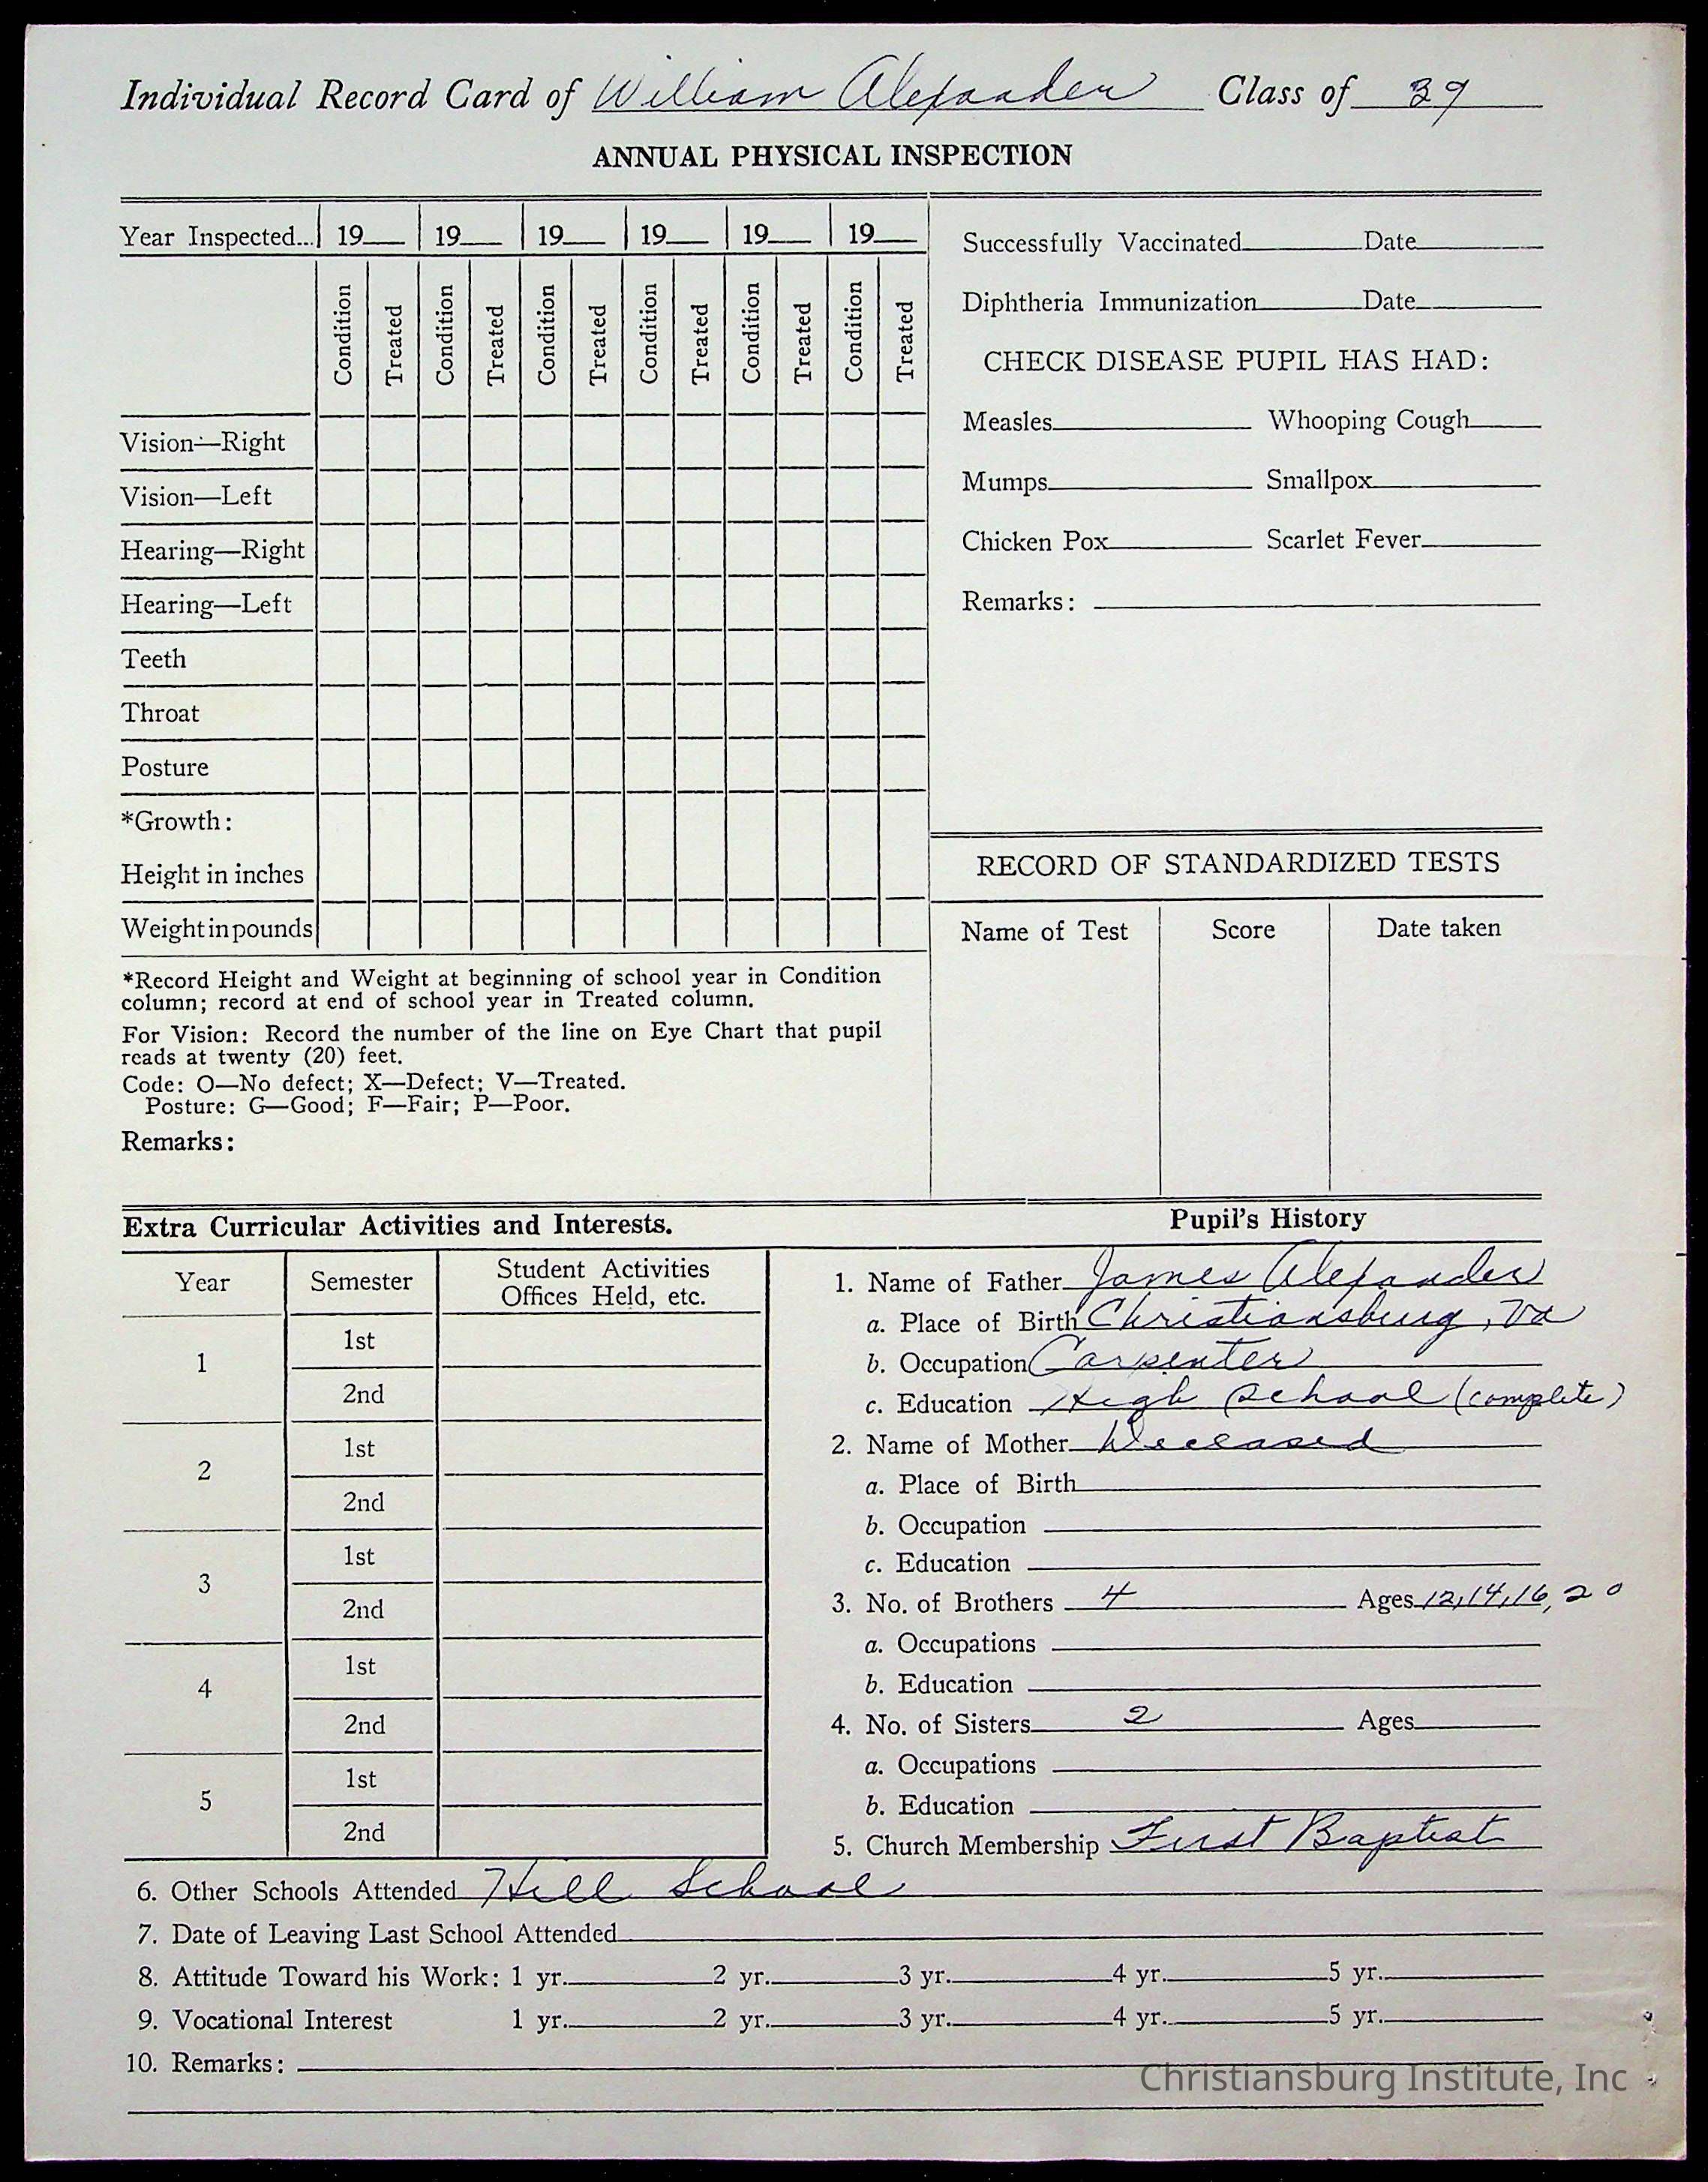 Individual Record Card of William Alexander Class of 39
ANNUAL PHYSICAL INSPECTION
Year Inspected... 19 19 19 19 19 19
Condition Treated Condition Treated Condition Treated Condition Treated Condition Treated Condition Treated
Vision—Right
Vision—Left
Hearing—Right
Hearing—Left
Teeth
Throat
Posture
*Growth:
Height in inches
Weight in pounds
*Record Height and Weight at beginning of school year in Condition
column; record at end of school year in Treated column.
For Vision: Record the number of the line on Eye Chart that pupil
reads at twenty (20) feet.
Code: O—No defect; X—Defect; V—Treated.
Posture: G—Good; F—Fair; P—Poor.
Remarks:
Successfully Vaccinated Date
Diphtheria Immunization Date
CHECK DISEASE PUPIL HAS HAD:
Measles Whooping Cough
Mumps Smallpox
Chicken Pox Scarlet Fever
Remarks:
RECORD OF STANDARDIZED TESTS
Name of Test Score Date taken
Extra Curricular Activities and Interests.
Year Semester Student Activities
Offices Held, etc.
1 1st
2nd
2 1st
2nd
3 1st
2nd
4 1st
2nd
5 1st
2nd
Pupil's History
1. Name of Father James Alexander
a. Place of Birth Christiansburg, Va
b. Occupation Carpenter
c. Education High School (complete)
2. Name of Mother Deceased
a. Place of Birth
b. Occupation
c. Education
3. No. of Brothers 4 Ages 12,14,16,20
a. Occupations
b. Education
4. No. of Sisters 2 Ages
a. Occupations
b. Education
5. Church Membership First Baptist
6. Other Schools Attended Hill School
7. Date of Leaving Last School Attended
8. Attitude Toward his Work: 1 yr. 2 yr. 3 yr. 4 yr. 5 yr.
9. Vocational Interest 1 yr. 2 yr. 3 yr. 4 yr. 5 yr.
10. Remarks:
Christiansburg Institute, Inc